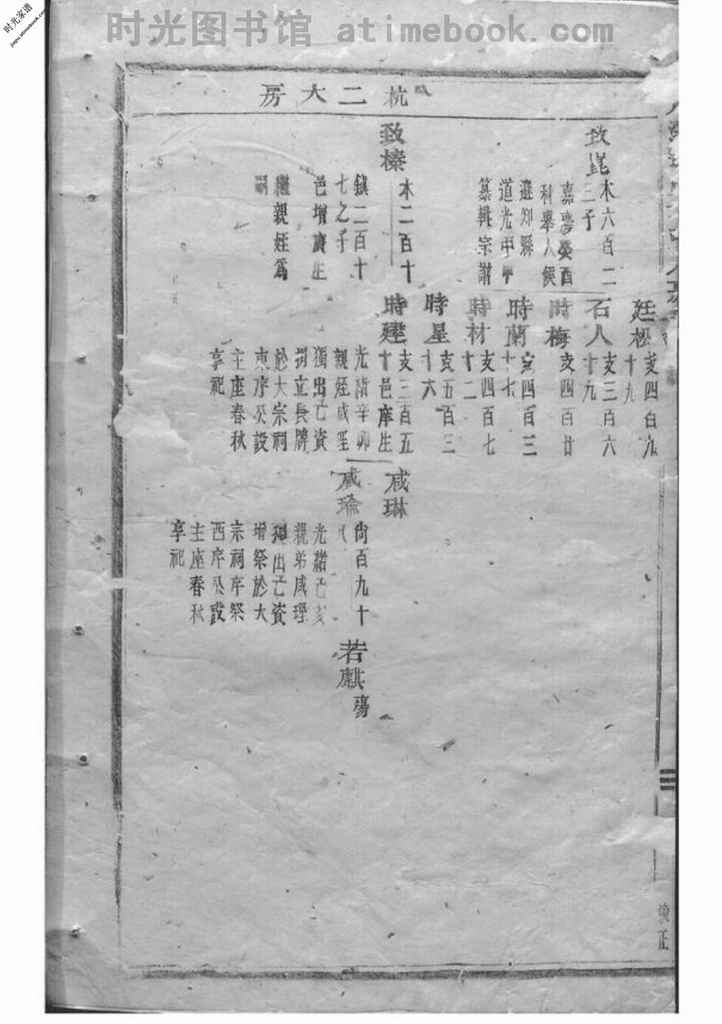 时光图书馆 atimebook.com
时光家谱
杭二大房
致崑
木六百二
三子
嘉慶癸酉
科舉人候
選知縣
道光甲申
纂輯宗譜
致榛
木二百十
鎮二百十
七之子
邑增廣生
繼親姪爲
嗣
廷松
支四百九
十九
石人
支三百六
十九
時梅
支四百廿
時蘭
支四百三
十七
時材
支四百七
十二
時星
支五百三
十六
時建
支三百五
十邑庠生
光緒辛卯
親姪咸
獨出亡資
捐立長牌
於大宗祠
東序癸設
主座春秋
享祀
咸琳
咸瑜
尙百九十
八
光緒亡
親弟咸理
獨出亡資
增祭於大
宗祠序祭
西序癸設
主座春秋
享祀
若麒
殤